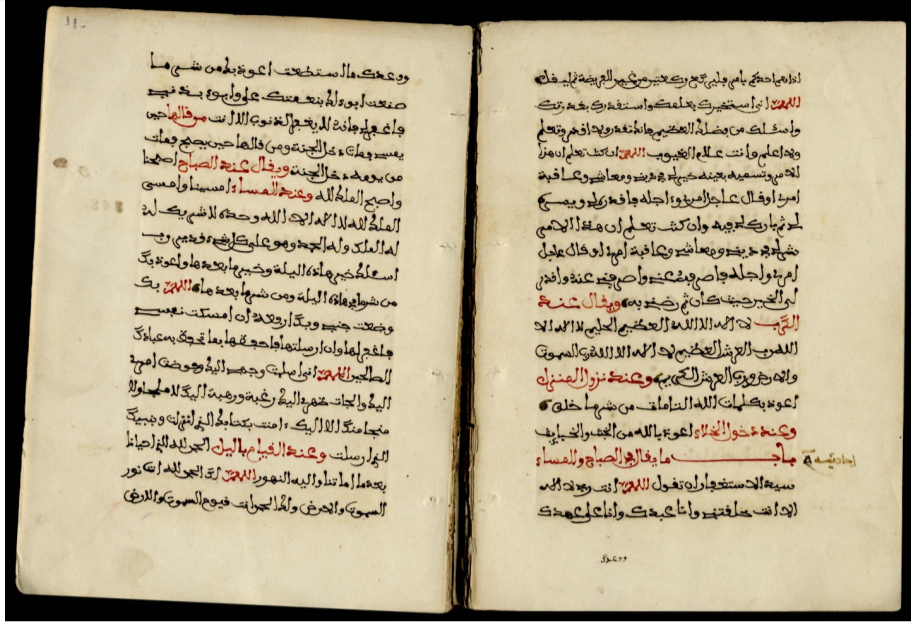 اذا هم احدكم بامر فليركع ركعتين من غير الفريضة ثم ليقل
اللهم اني استخيرك بعلمك واستقدرك بقدرتك
واسئلك من فضلك العظيم فانك تقدر ولا اقدر وتعلم
ولا اعلم وانت علام الغيوب اللهم ان كنت تعلم ان هذا
الامر وتسميه بعينه خير لي في ديني ومعاشي وعاقبة
امري او قال عاجل امري واجله فاقدره لي ويسره
لي ثم بارك لي فيه وان كنت تعلم ان هذا الامر
شر لي في ديني ومعاشي وعاقبة امري او قال عاجل
امري واجله فاصرفه عني واصرفني عنه واقدر
لي الخير حيث كان ثم رضني به ويقال عند
الكرب لا اله الا الله العظيم الحليم لا اله الا
الله رب العرش العظيم لا اله الا الله رب السموت
والارض ورب العرش الكريم وعند نزول المنزل
اعوذ بكلمات الله التامات من شر ما خلق
وعند دخول الخلاء اعوذ بالله من الخبث والخبايث
باب ما يقال في الصباح والمساء
احاديثه
سيد الاستغفار ان تقول اللهم انت ربي لا اله
الا انت خلقتني وانا عبدك وانا على عهدك
ووعدك
ووعدك ما استطعت اعوذ بك من شر ما
صنعت ابوء لك بنعمتك علي وابوء بذنبي
فاغفر لي فانه لا يغفر الذنوب الا انت من قالها حين
يمسي فمات دخل الجنة ومن قالها حين يصبح فمات
من يومه دخل الجنة ويقال عند الصباح اصبحنا
واصبح الملك لله وعند المساء امسينا وامسى
الملك لله لا اله الا الله وحده لا شريك له
له الملك وله الحمد وهو على كل شيء قدير رب
اسئلك خير هاذه اليلة وخير ما بعدها واعوذ بك
من شر هاذه اليلة ومن شر ما بعدها اللهم بك
وضعت جنبي وبك ارفعه ان امسكت نفسي
فاغفر لها وان ارسلتها فاحفظها بما تحفظ به عبادك
الصالحين اللهم اني اسلمت وجهي اليك وفوضت امري
اليك والجات ظهري اليك رغبة ورهبة اليك لا ملجا ولا
منجا منك الا اليك امنت بكتابك الذي انزلت ونبيك
الذي ارسلت وعند القيام باليل الحمد لله الذي احيانا
بعد ما اماتنا واليه النشور اللهم لك الحمد انت نور
السموت والارض ولك الحمد انت قيوم السموت والارض